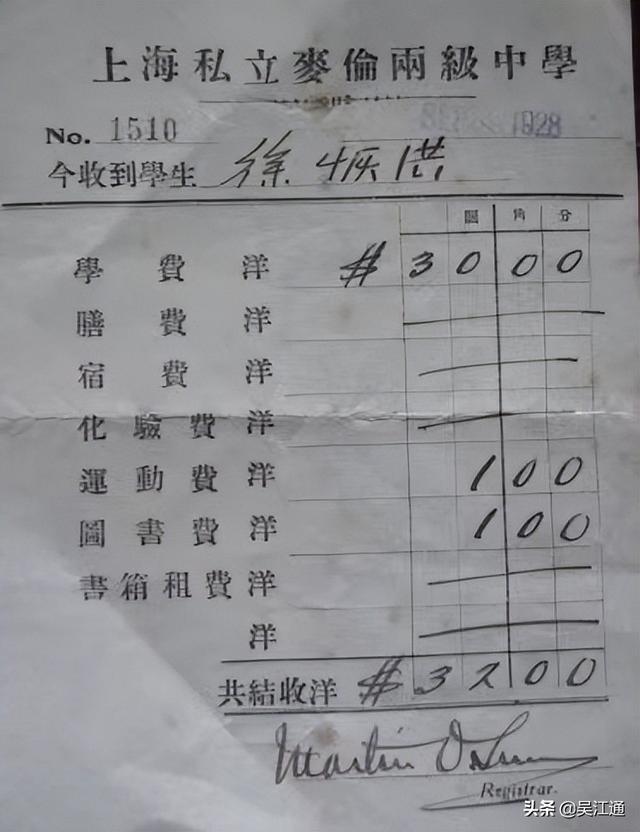 上海私立麥倫兩級中學
No. 1510 1928
今收到學生 徐
圓 角 分
學費洋 # 30 00
膳費洋
宿費洋
化驗費洋
運動費洋 1 00
圖書費洋 1 00
書箱租費洋
洋
共結收洋 # 32 00
Martin
Registrar.
头条 @吴江通